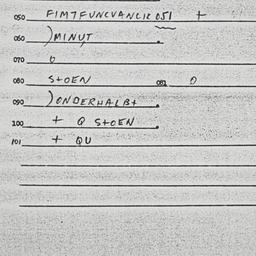 050 FIMTFUNCVANCIR 051 +
060 )MINUT.
070 0
080 STOEN 081 0
090 )ONDERHALBT.
100 + Q STOEN.
101 + QU